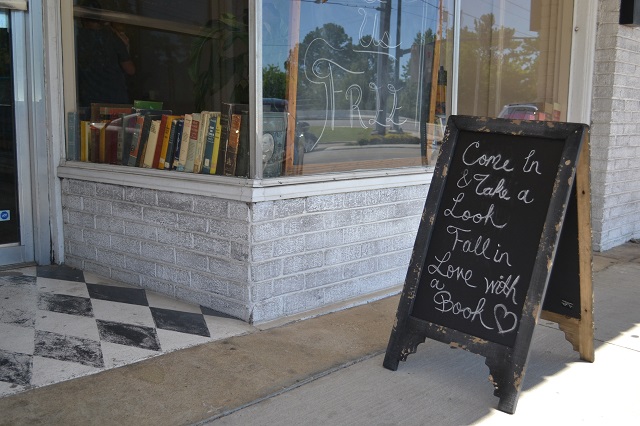 Us
TREE
Come In
& Take a
Look
Fall in
Love with
a
Book